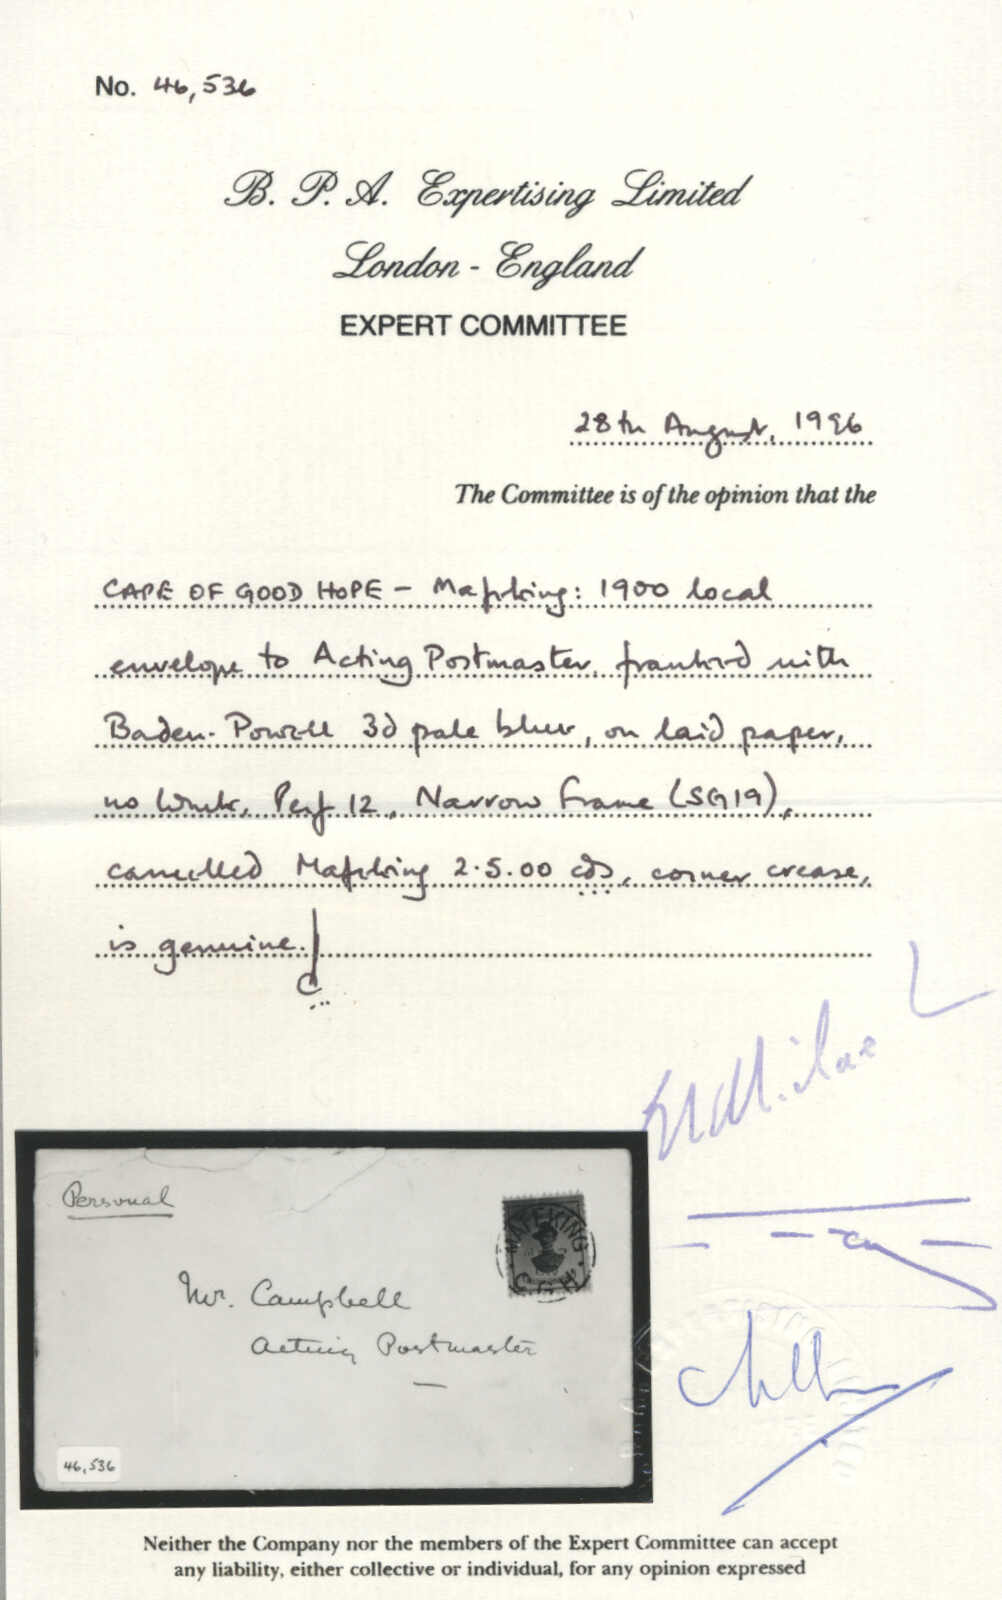 No. 46,536
B. P. A. Expertising Limited
London - England
EXPERT COMMITTEE
28th August, 1996
The Committee is of the opinion that the
CAPE OF GOOD HOPE - Mafeking: 1900 local
envelope to Acting Postmaster, franked with
Baden-Powell 3d pale blue, on laid paper,
no Wmk, Perf 12, Narrow Frame (SG19),
cancelled Mafeking 2.5.00 cds, corner crease,
is genuine.
Personal
MAFEKING
C.G.H.
Mr. Campbell
Acting Postmaster
46,536
Neither the Company nor the members of the Expert Committee can accept
any liability, either collective or individual, for any opinion expressed